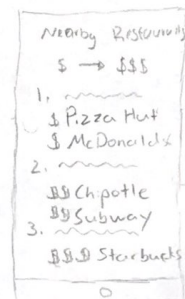 Nearby Restaurants
$ → $$$
1.
$ Pizza Hut
$ McDonalds
2.
$$ Chipotle
$$ Subway
3.
$$$ Starbucks